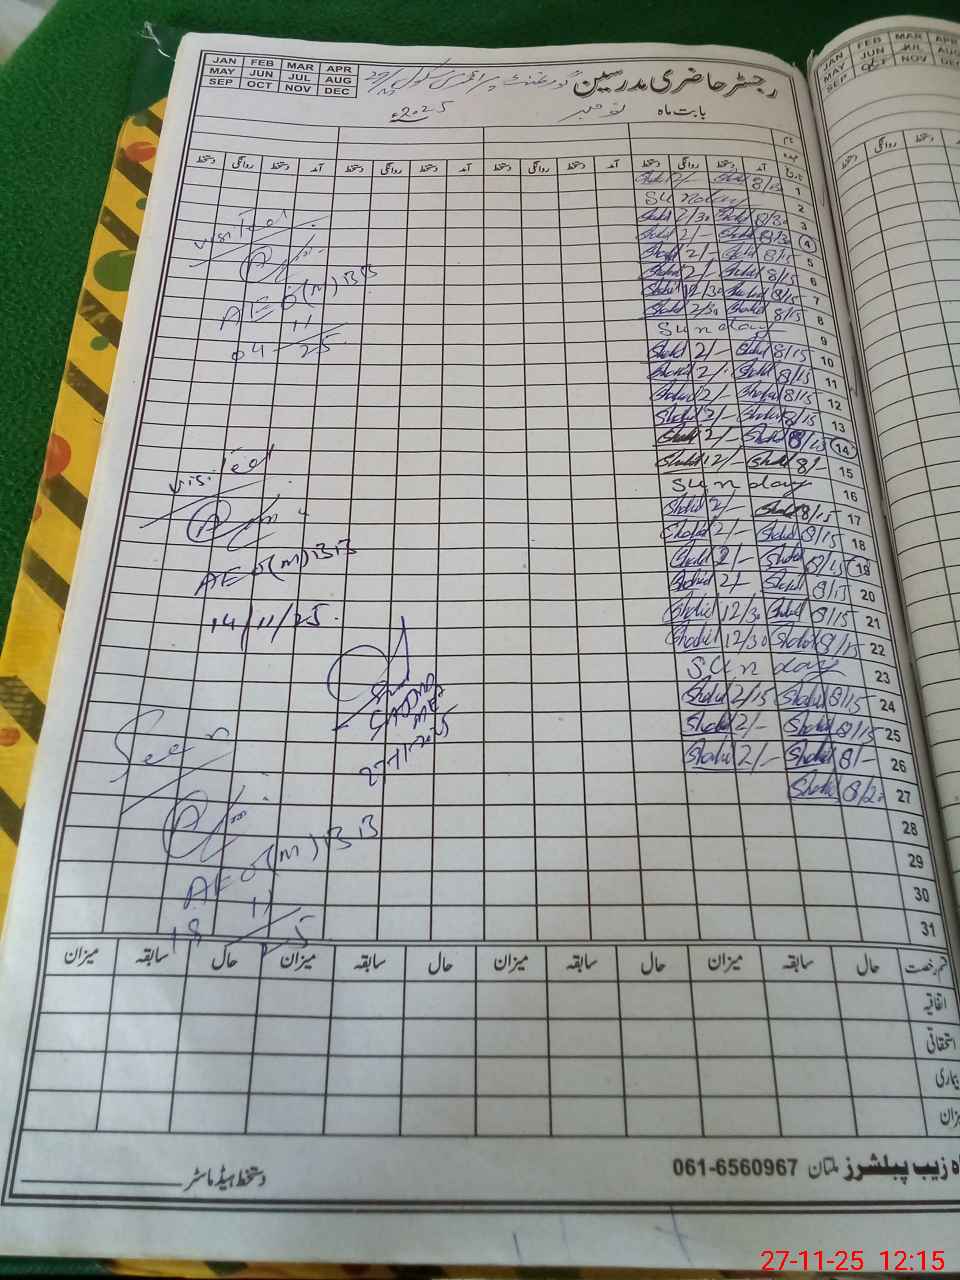 JAN FEB MAR APR
MAY JUN JUL AUG
SEP OCT NOV DEC
رجسٹر حاضری مدرسین گورنمنٹ پرائمری سکول
بابت ماہ نومبر 2025ء
نام
عہدہ
تاریخ آمد دستخط روانگی دستخط آمد دستخط روانگی دستخط آمد دستخط روانگی دستخط آمد دستخط روانگی دستخط
1 8/15 Shahid 2/- Shahid
2 Sunday
3 8/30 Shahid 2/30 Shahid
4 8/30 Shahid 2/- Shahid
5 8/15 Shahid 2/- Shahid
6 8/15 Shahid 2/- Shahid
7 8/15 Shahid 12/30 Shahid
8 8/15 Shahid 2/30 Shahid
9 Sunday
10 8/15 Shahid 2/- Shahid
11 8/15 Shahid 2/- Shahid
12 8/15 Shahid 2/- Shahid
13 8/15 Shahid 2/- Shahid
14 8/15 Shahid 2/- Shahid
15 8/- Shahid 12/- Shahid
16 Sunday
17 8/15 Shahid 2/- Shahid
18 8/15 Shahid 2/- Shahid
19 8/15 Shahid 2/- Shahid
20 8/15 Shahid 2/- Shahid
21 8/15 Shahid 12/30 Shahid
22 8/15 Shahid 12/30 Shahid
23 Sunday
24 8/15 Shahid 2/15 Shahid
25 8/15 Shahid 2/- Shahid
26 8/- Shahid 2/- Shahid
27 8/20 Shahid
28
29
30
31
visited
AEO(M) BB
04 11/25
visited
AEO(M) BB
14/11/25
27-11-2025
Seen
AEO(M) BB
18 11/25
قسم رخصت حال سابقہ میزان حال سابقہ میزان حال سابقہ میزان حال سابقہ میزان
اتفاقیہ
استحقاقی
بیماری
میزان
زیب پبلشرز ملتان 061-6560967
دستخط ہیڈ ماسٹر
JAN FEB MAR APR
MAY JUN JUL AUG
SEP OCT NOV DEC
دستخط روانگی دستخط
27-11-25 12:15